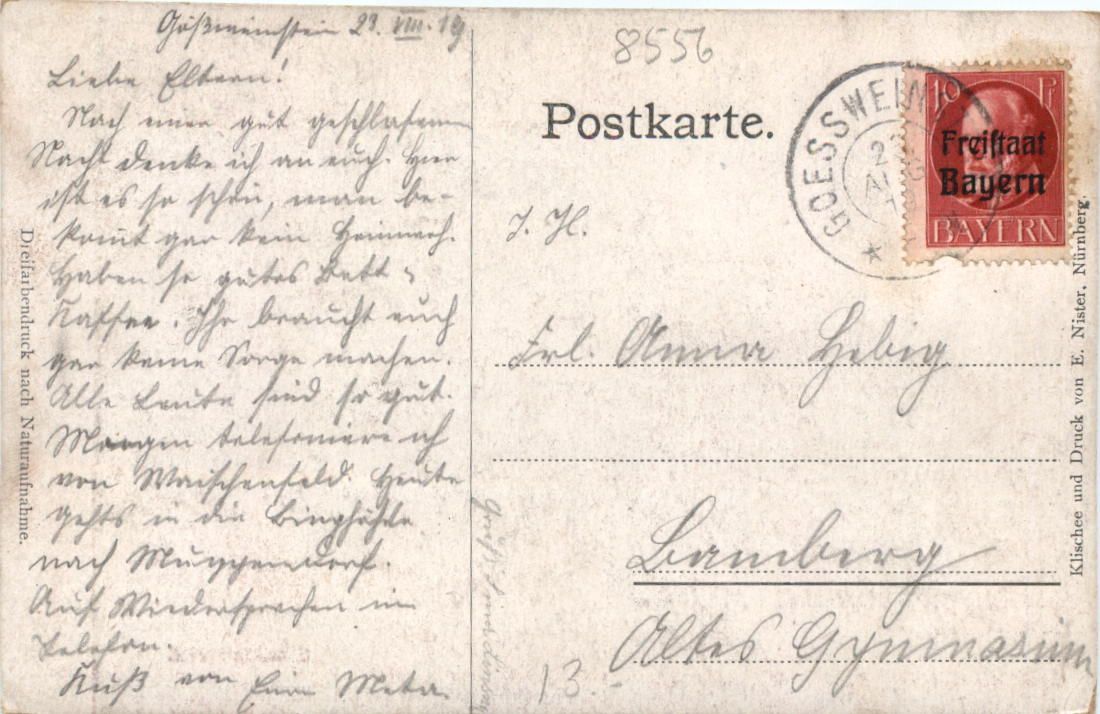 Gößweinstein 23. VIII. 19
Liebe Eltern!
Nach einer gut geschlafenen
Nacht denke ich an euch. Hier
ist es so schön, man be-
komt gar kein Heimweh.
Haben so gutes Bett u
Kaffee. Ihr braucht euch
gar keine Sorge machen.
Alle Leute sind so gut.
Morgen telefoniere ich
von Waischenfeld. Heute
gehts in die Binghöhle
nach Muggendorf.
Auf Wiedersprechen im
Telefon.
Kuß von Eurer Meta.
Gruß
Dreifarbendruck nach Naturaufnahme.
8556
Postkarte.
GOESSWEIN
23
AUG
10 Pf
Freistaat
Bayern
BAYERN
Frl. Anna Hebig
Bamberg
Altes Gymnasium
13.-
Klischee und Druck von E. Nister, Nürnberg.